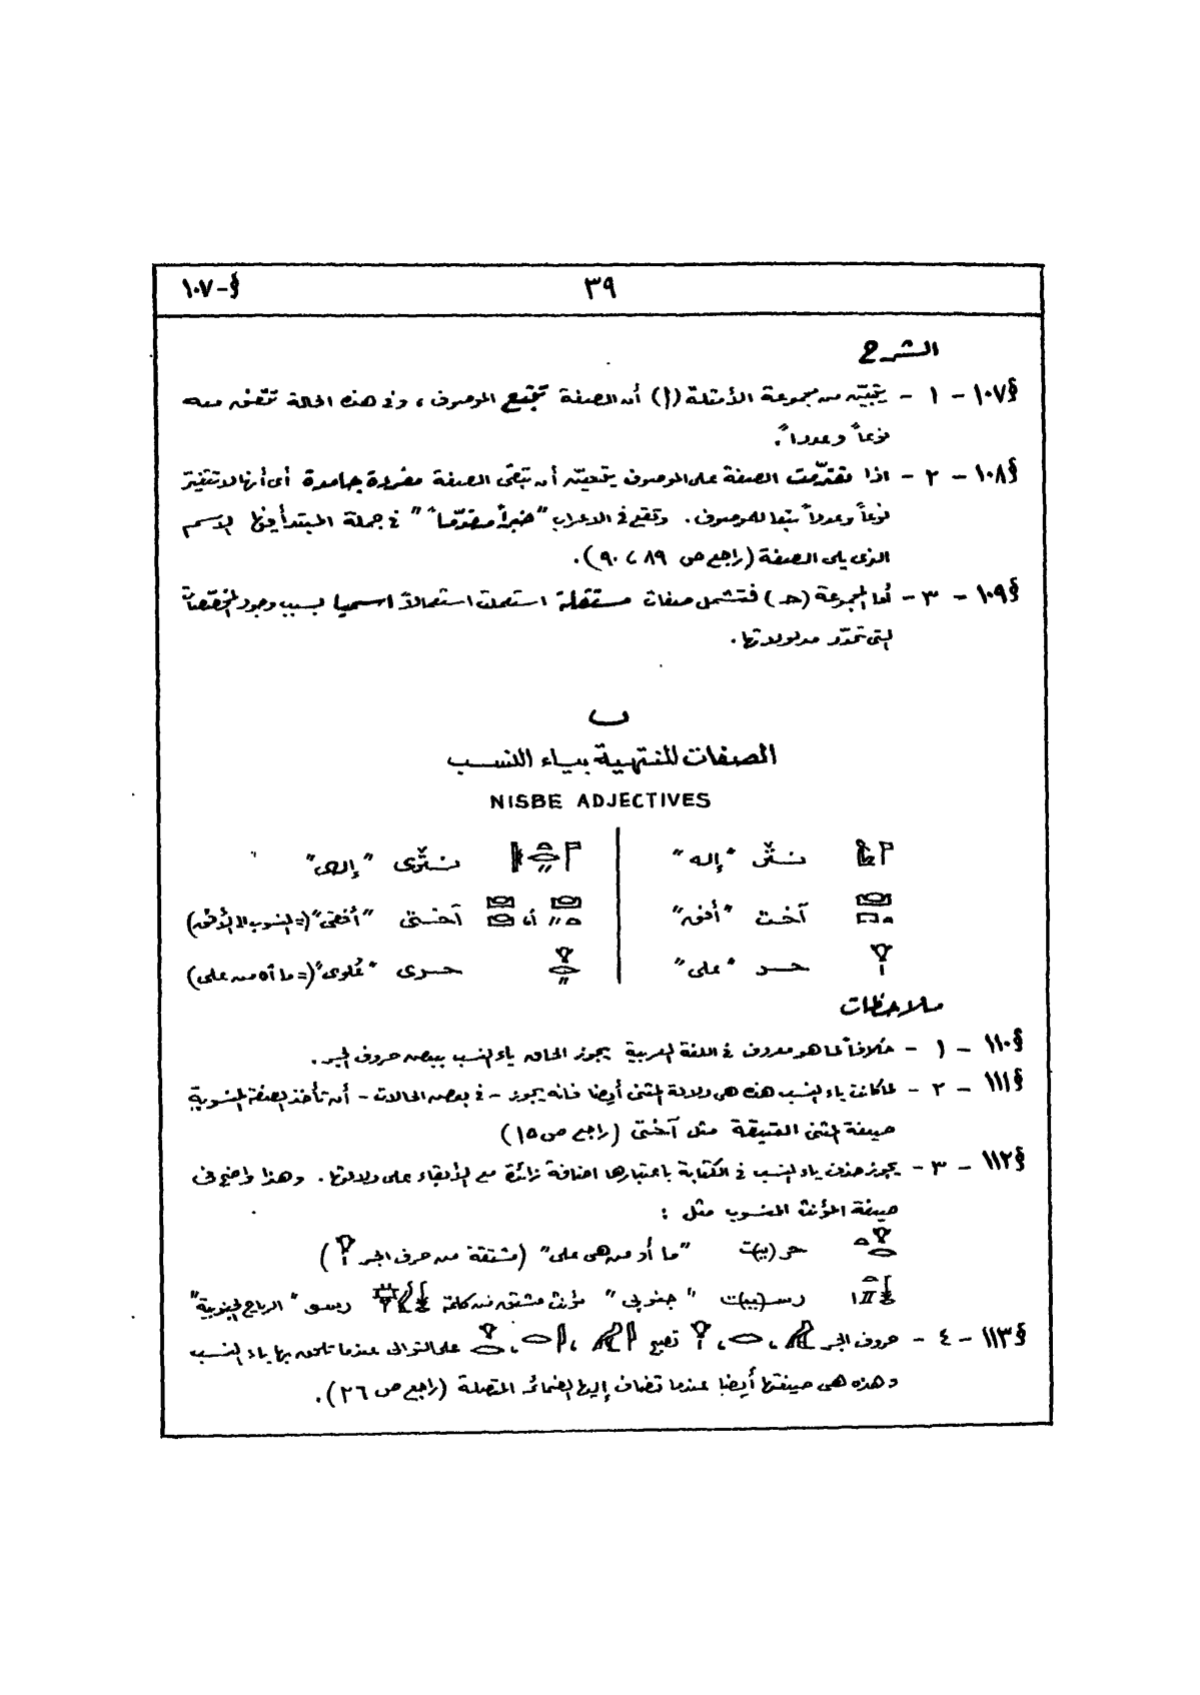 §-١٠٧
٣٩
الشرح
§١٠٧ - ١ - يتبيّن من مجموعة الأمثلة (أ) أن الصفة تتبع الموصوف، وفى هذه الحالة تتفق معه
نوعاً وعدداً.
§١٠٨ - ٢ - اذا تقدّمت الصفة على الموصوف يتعيّن أن تبقى الصفة مفردة جامدة أى أنها لا تتغيّر
نوعاً وعدداً تبعا للموصوف. وتقع فى الاعراب "خبراً مقدّماً" فى جملة المبتدأ فيها الاسم
الذى يلى الصفة (راجع ص ٨٩، ٩٠).
§١٠٩ - ٣ - أما المجموعة (حـ) فتشمل صفات مستقلة استعملت استعمالاً اسميا بسبب وجود المخصّصات
التى تحدّد مدلولاتها.
ب
الصفات المنتهية بياء النسب
NISBE ADJECTIVES
نـثر "إله" نـثرى "إلهى"
آخـت "أفق" أو آخـتى "أفقى" (= المنسوب الى الأفق)
حـر "على" حـرى "عُلوى" (= ما كان من على)
ملاحظات
§١١٠ - ١ - خلافاً لما هو معروف فى اللغة العربية يجوز الحاق ياء النسب ببعض حروف الجر.
§١١١ - ٢ - لما كانت ياء النسب هذه هى دلالة المثنى أيضا فانه يجوز - فى بعض الحالات - أن تأخذ الصفة المنسوبة
صيغة المثنى العتيقة مثل آختى (راجع ص ١٥)
§١١٢ - ٣ - يجوز حذف ياء النسب فى الكتابة باعتبارها اضافة زائدة مع الإبقاء على دلالتها. وهذا واضح فى
صيغة المؤنث المنسوب مثل :
حر(يـ)ت "ما أو من هى على" (مشتقة من حرف الجر)
رسـ(يـ)ت "جنوبى" مؤنث مشتق من كلمة رسو "الرياح الجنوبية"
§١١٣ - ٤ - حروف الجر ، ، تصبح ، ، على التوالى عندما تلحق بها ياء النسب
وهذه هى صيغتها أيضا عندما تضاف إليها الضمائر المتصلة (راجع ص ٢٦).